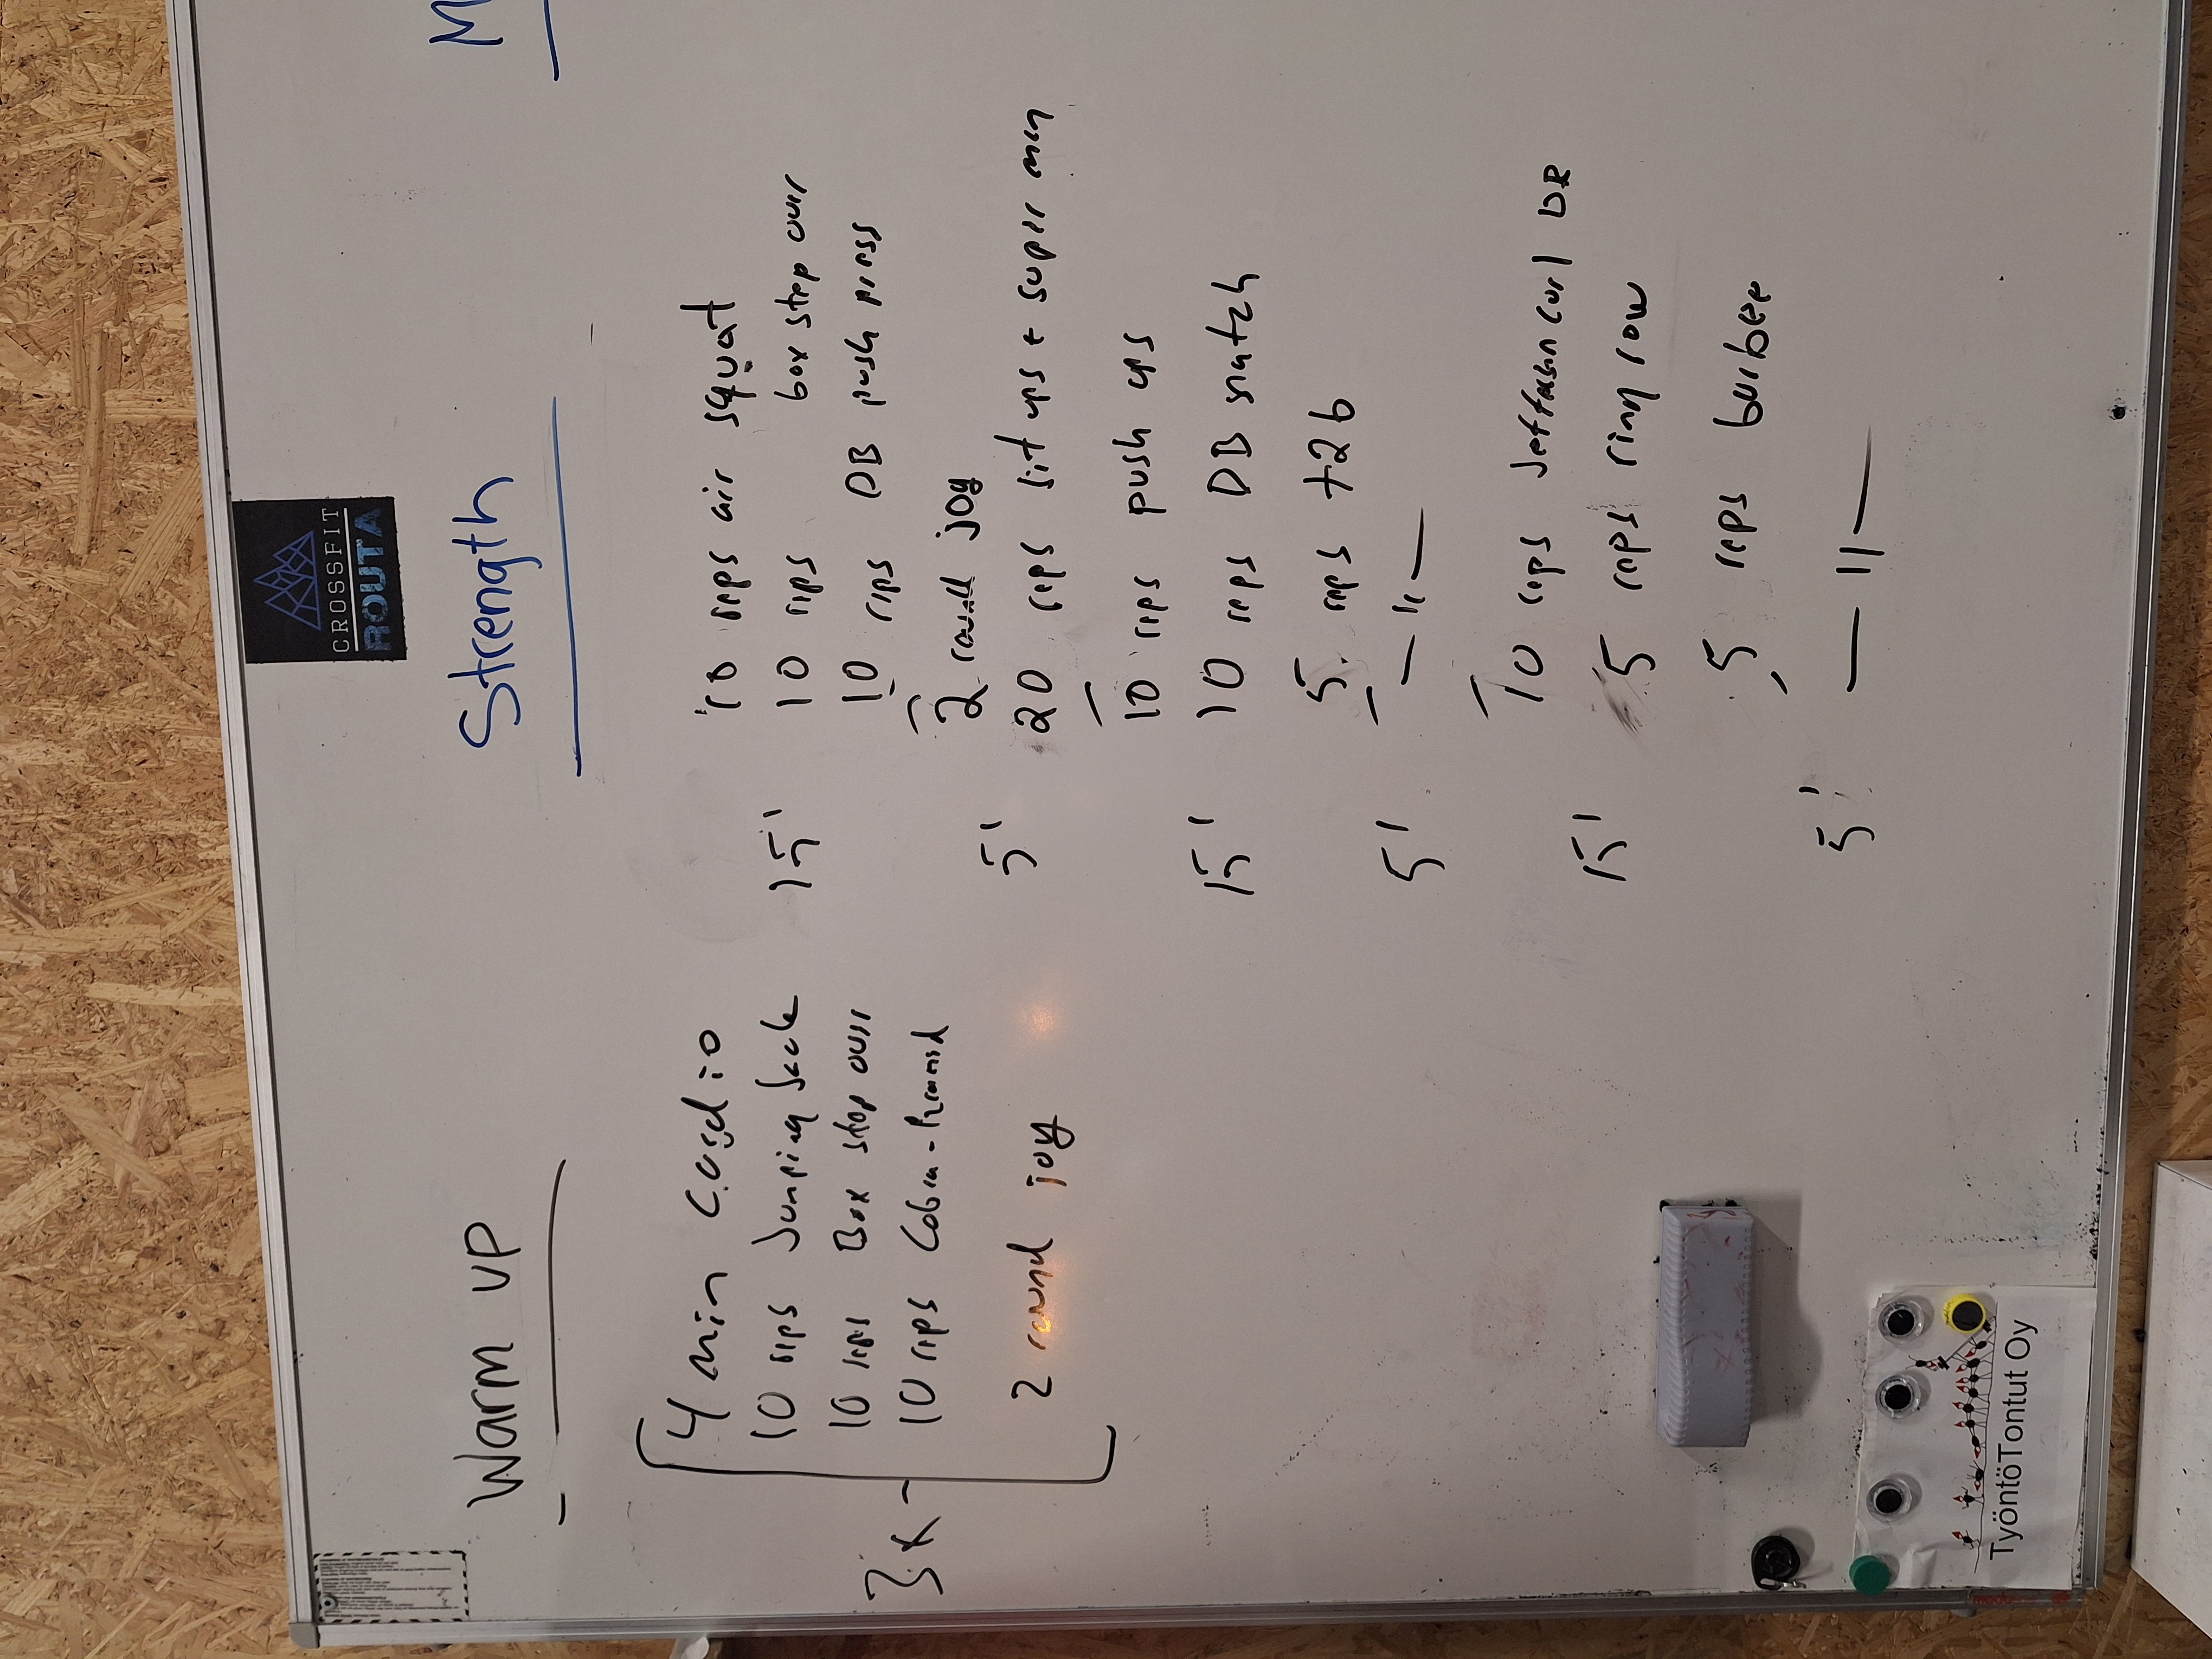 CROSSFIT
ROUTA
Warm up
3x
4 min cardio
10 reps Jumping Jack
10 reps Box step over
10 reps Cobra-Pyramid
2 round jog
Strength
15'
10 reps air squat
10 reps box step over
10 reps DB push press
5'
2 round jog
20 reps sit ups + super man
15'
10 reps push ups
10 reps DB snatch
5 reps t2b
5' — 11 —
15'
10 reps Jeffason curl DB
5 reps ring row
5 reps burbee
5' — 11 —
M
TyöntöTontut Oy